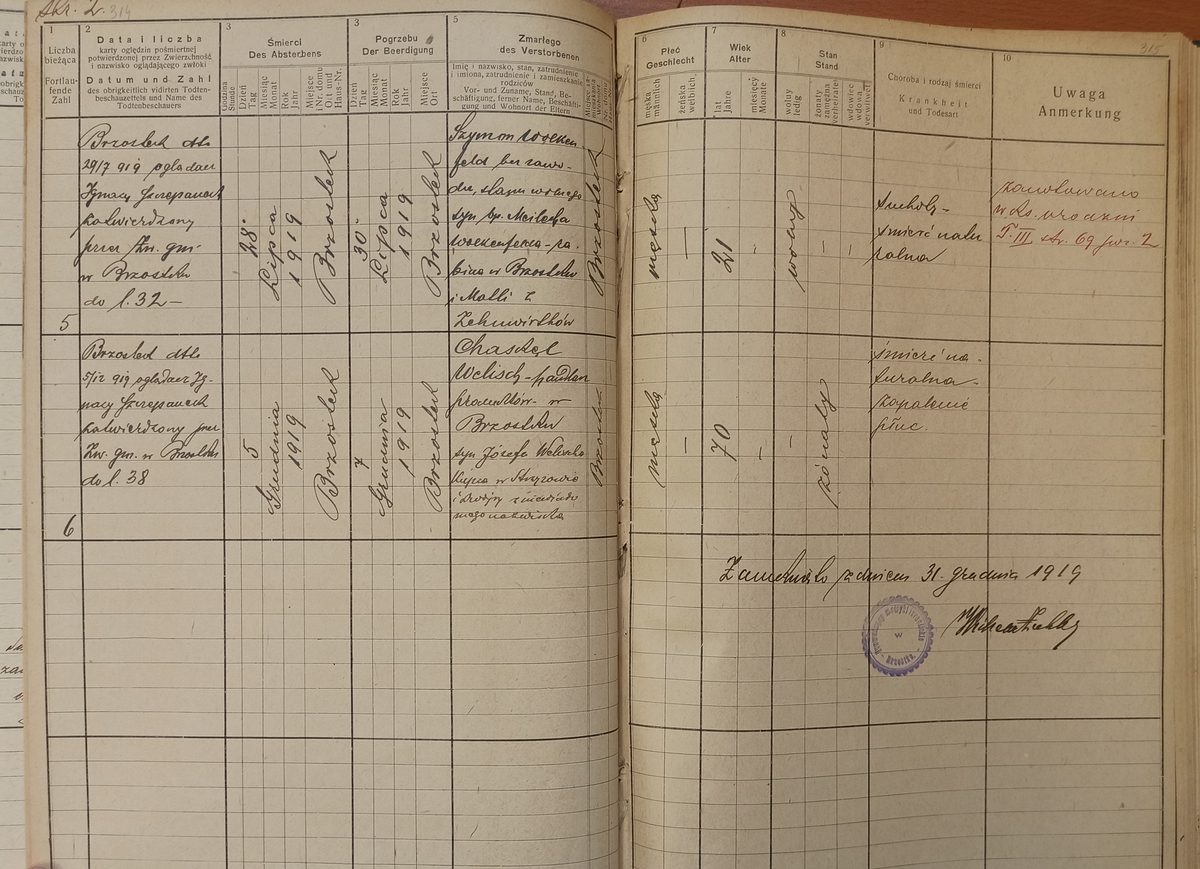 Str. 2.
314
1
Liczba
bieżąca
Fortlau-
fende
Zahl
2
Data i liczba
karty oględzin pośmiertnej
potwierdzonej przez Zwierzchność
i nazwisko oglądającego zwłoki
Datum und Zahl
des obrigkeitlich vidirten Todten-
beschauzettels und Name des
Todtenbeschauers
3
Śmierci
Des Absterbens
Godzina
Stunde
Dzień
Tag
Miesiąc
Monat
Rok
Jahr
Miejsce
i Nr. domu
Ort und
Haus-Nr.
3
Pogrzebu
Der Beerdigung
Dzień
Tag
Miesiąc
Monat
Rok
Jahr
Miejsce
Ort
5
Zmarłego
des Verstorbenen
Imię i nazwisko, stan, zatrudnienie
i imiona, zatrudnienie i zamieszkanie
rodziców
Vor- und Zuname, Stand, Be-
schäftigung, ferner Name, Beschäfti-
gung und Wohnort der Eltern
6
Płeć
Geschlecht
męska
männlich
żeńska
weiblich
7
Wiek
Alter
lat
Jahre
miesięcy
Monate
8
Stan
Stand
wolny
ledig
żonaty
zamężna
verheiratet
wdowiec
wdowa
verwitwet
9
Choroba i rodzaj śmierci
Krankheit
und Todesart
10
Uwaga
Anmerkung
315
5
Brzostek dto
29/7 919 oglądacz
Ignacy Szczepanek
potwierdzony
przez Zw. gm.
w Brzostku
do l. 32 —
28.
Lipca
1919
Brzostek
30.
Lipca
1919
Brzostek
Szymon Wolken
feld bez zawo-
du, stanu wolnego
syn śp. Meilecha
Wolkenfelda - ra-
bina w Brzostku
i Malli z
Brzostek
męska
—
21
—
wolny
—
—
Suchoty -
śmierć natu
ralna
zanotowano
w ks. urodzin
T. III. str. 69 poz. 2
6
Brzostek dto
5/12 919 oglądacz Ig-
nacy Szczepanek
potwierdzony przez
Zw. gm. w Brzostku
do l. 38
5
Grudnia
1919
Brzostek
7
Grudnia
1919
Brzostek
Chaskel
Welisch - handlarz
produktów - w
Brzostku
syn Józefa
kupca w Strzyżowie
i Drezli z niewiado
mego nazwiska
Brzostek
męska
—
70
—
—
żonaty
śmierć na-
turalna -
zapalenie
płuc.
Zamknięto z dniem 31. grudnia 1919
w
Brzostku